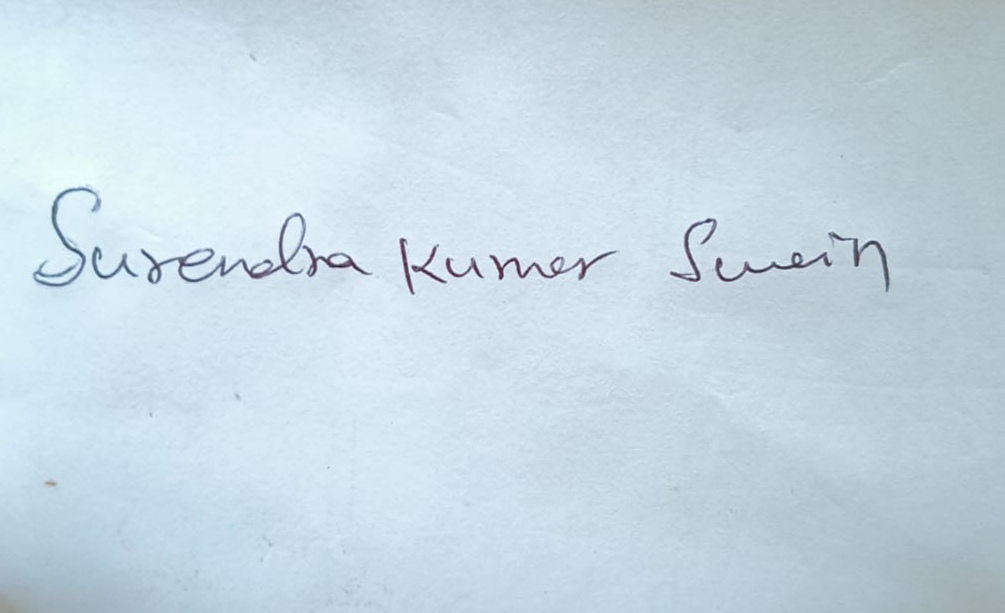 Surendra Kumar Swain